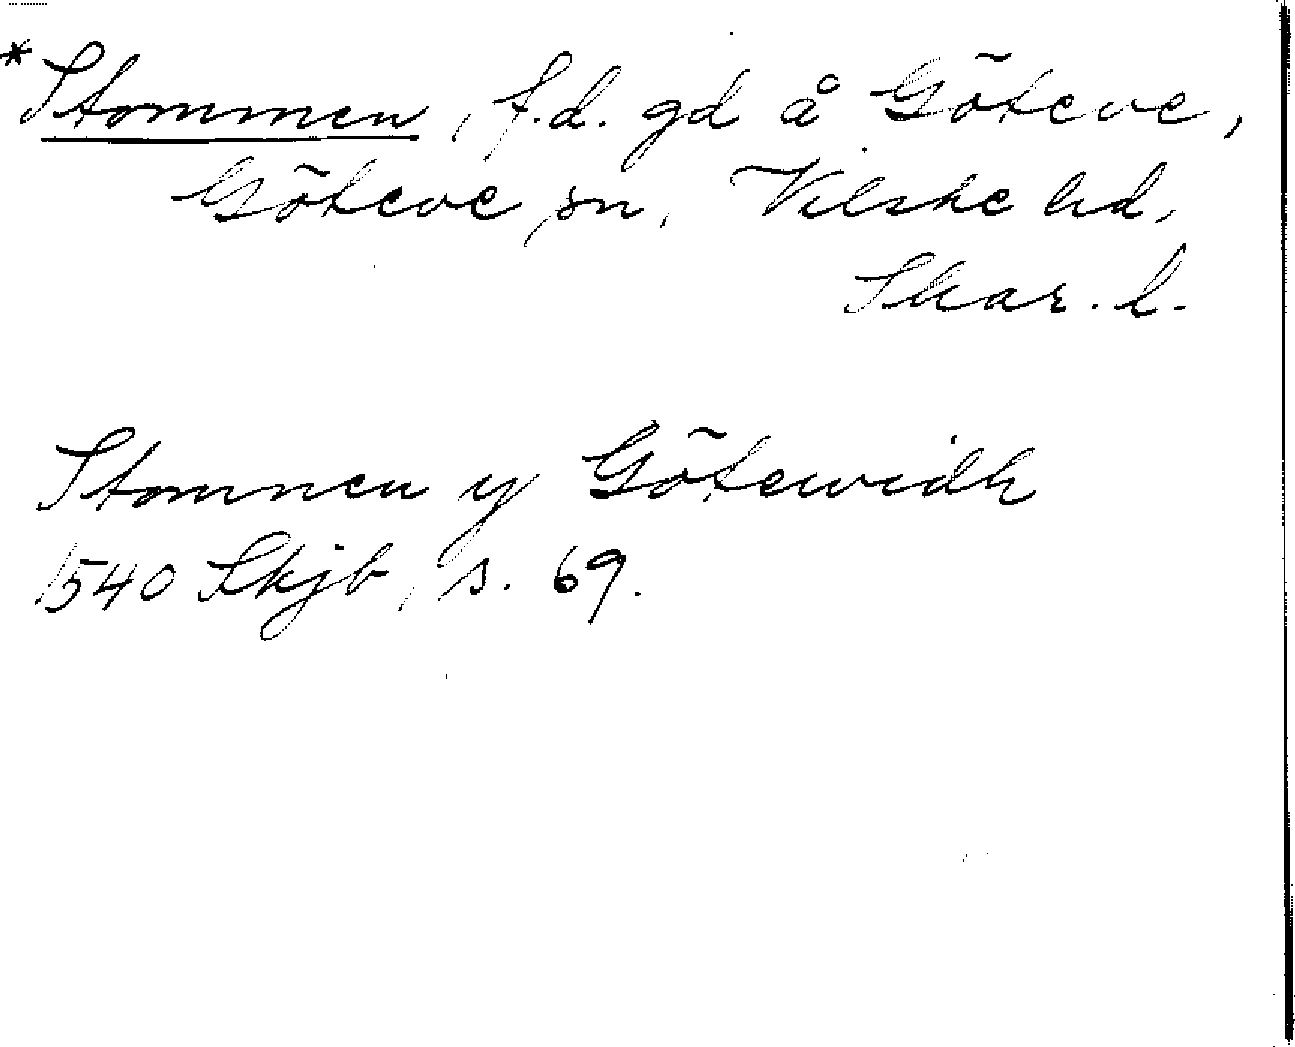 *Stommen, f.d. gd å Göteve,
Göteve sn, Vilske hd,
Skar. l.
Stomnen y Götewidh
1540 Skjb, s. 69.